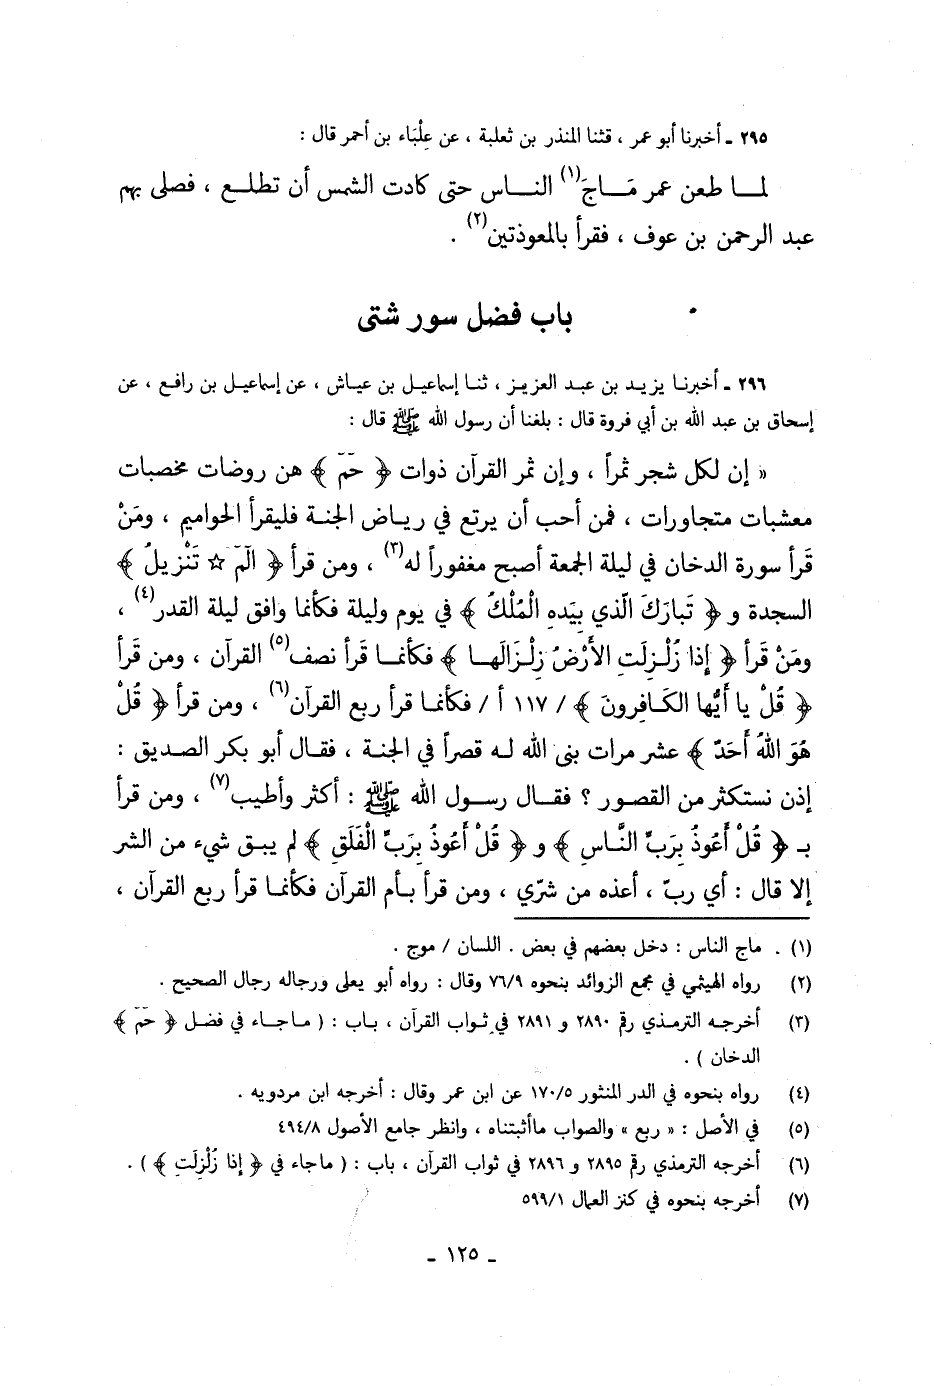 ٢٩٥ ـ أخبرنا أبو عمر ، قثنا المنذر بن ثعلبة ، عن عِلْبَاء بن أحمر قال :
لمـا طعن عمر مَـاجَ(١) النـاس حتى كادت الشمس أن تطلـع ، فصلى بهم
عبد الرحمن بن عوف ، فقرأ بالمعوذتين(٢) .
باب فضل سور شتى
٢٩٦ ـ أخبرنـا يزيـد بن عبـد العزيـز ، ثنـا إسماعيل بن عياش ، عن إسماعيـل بن رافـع ، عن
إسحاق بن عبد الله بن أبي فروة قال : بلغنا أن رسول الله ﷺ قال :
« إن لكل شجر ثمراً ، وإن ثمر القرآن ذوات ﴿ حَمَ ﴾ هن روضات مخصبات
معشبات متجاورات ، فمن أحب أن يرتع في ريـاض الجنـة فليقرأ الحواميم ، ومَنْ
قَرأ سورة الدخان في ليلة الجمعة أصبح مغفوراً له(٣) ، ومن قرأ ﴿ الَمَ ☆ تَنْزِيلُ ﴾
السجدة و ﴿ تَبارَكَ الَّذي بِيَدهِ الْمُلْكُ ﴾ في يوم وليلة فكأنما وافق ليلة القدر(٤) ،
ومَنْ قَرأ ﴿ إذا زُلْـزِلَتِ الأَرْضُ زِلْـزَالَهـا ﴾ فكأنمـا قَرأ نصف(٥) القرآن ، ومن قَرأ
﴿ قُلْ يا أَيُّها الكَـافِرونَ ﴾ / ١١٧ أ / فكأنما قرأ ربع القرآن(٦) ، ومن قرأ ﴿ قُلْ
هُوَ اللهُ أَحَدٌ ﴾ عشر مرات بنى الله لـه قصراً في الجنـة ، فقـال أبو بكر الصـديق :
إذن نستكثر من القصور ؟ فقـال رسـول الله ﷺ : أكثر وأطيب(٧) ، ومن قرأ
بـ ﴿ قُلْ أَعُوذُ بِرَبِّ النَّاسِ ﴾ و ﴿ قُلْ أَعُوذُ بِرَبِّ الْفَلَقِ ﴾ لم يبق شيء من الشر
إلا قال : أي ربّ ، أعذه من شرّي ، ومن قرأ بـأم القرآن فكأنمـا قرأ ربع القرآن ،
(١) . ماج الناس : دخل بعضهم في بعض . اللسان / موج .
(٢) رواه الهيثمي في مجمع الزوائد بنحوه ٧٦/٩ وقال : رواه أبو يعلى ورجاله رجال الصحيح .
(٣) أخرجـه الترمـذي رقم ٢٨٩٠ و ٢٨٩١ في ثـواب القرآن ، بـاب : ( مـاجـاء في فضـل ﴿ حَمَ ﴾
الدخان ) .
(٤) رواه بنحوه في الدر المنثور ١٧٠/٥ عن ابن عمر وقال : أخرجه ابن مردويه .
(٥) في الأصل : « ربع » والصواب ماأثبتناه ، وانظر جامع الأصول ٤٩٤/٨
(٦) أخرجه الترمذي رقم ٢٨٩٥ و ٢٨٩٦ في ثواب القرآن ، باب : ( ماجاء في ﴿ إذا زُلْزِلَتِ ﴾ ) .
(٧) أخرجه بنحوه في كنز العمال ٥٩٩/١
ـ ١٢٥ ـ